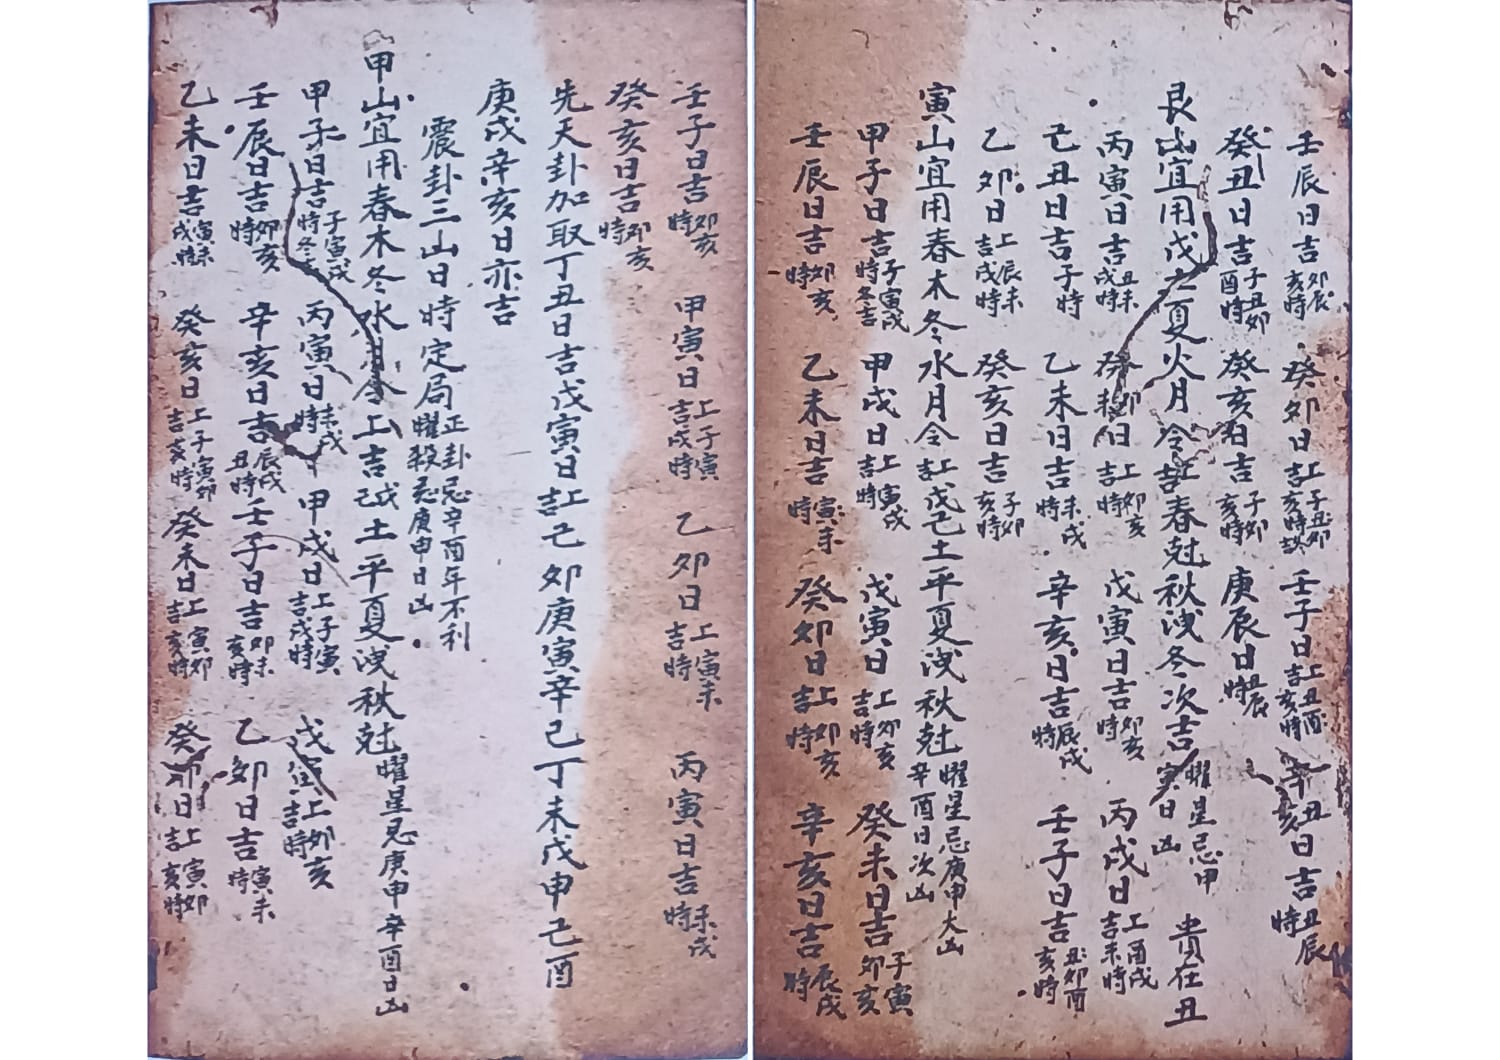 壬辰日吉卯辰亥時 癸卯日吉上子丑卯亥時 壬子日吉上丑酉亥時 辛丑辛亥日吉丑辰時
癸丑日吉子丑卯酉時 癸亥日吉子卯亥時 庚辰日丑辰時 貴在丑
艮山宜用戊己夏火月令上吉春尅秋洩冬次吉曜星忌甲寅日凶
丙寅日吉丑未戌時 癸未日吉上卯亥時 戊寅日吉卯亥時 丙戌日吉上酉戌未時
己丑日吉子時 乙未日吉未戌時 辛亥日吉辰戌時 壬子日吉丑卯酉亥時
乙卯日吉上辰未戌時 癸亥日吉子卯亥時
寅山宜用春木冬水月令上吉戊己土平夏洩秋尅曜星忌庚申大凶辛酉日次凶
甲子日吉子寅戌時冬吉 甲戌日吉上寅戌時 戊寅日吉上卯亥時 癸未日吉子寅卯亥
壬辰日吉卯亥時 乙未日吉寅未時 癸卯日吉上卯亥時 辛亥日吉辰戌時
壬子日吉卯亥時 甲寅日吉上子寅戌時 乙卯日吉上寅未時 丙寅日吉未戌時
癸亥日吉卯亥時
先天卦加取丁丑日吉戊寅日上吉己卯庚寅辛己丁未戊申己酉
庚戌辛亥日亦吉
震卦三山日時定局正卦忌辛酉年不利曜殺忌庚申日凶
甲山宜用春木冬水月令上吉戊己土平夏洩秋尅曜星忌庚申辛酉日凶
甲子日吉子寅戌時冬 丙寅日未戌時 甲戌日吉上子寅戌時 戊寅吉上卯亥時
壬辰日吉卯亥時 辛亥日吉辰戌丑時 壬子日吉卯未亥時 乙卯日吉寅未時
乙未日吉寅未戌時 癸亥日吉上子寅卯亥時 癸未日吉上寅卯亥時 癸卯日吉上寅卯亥時